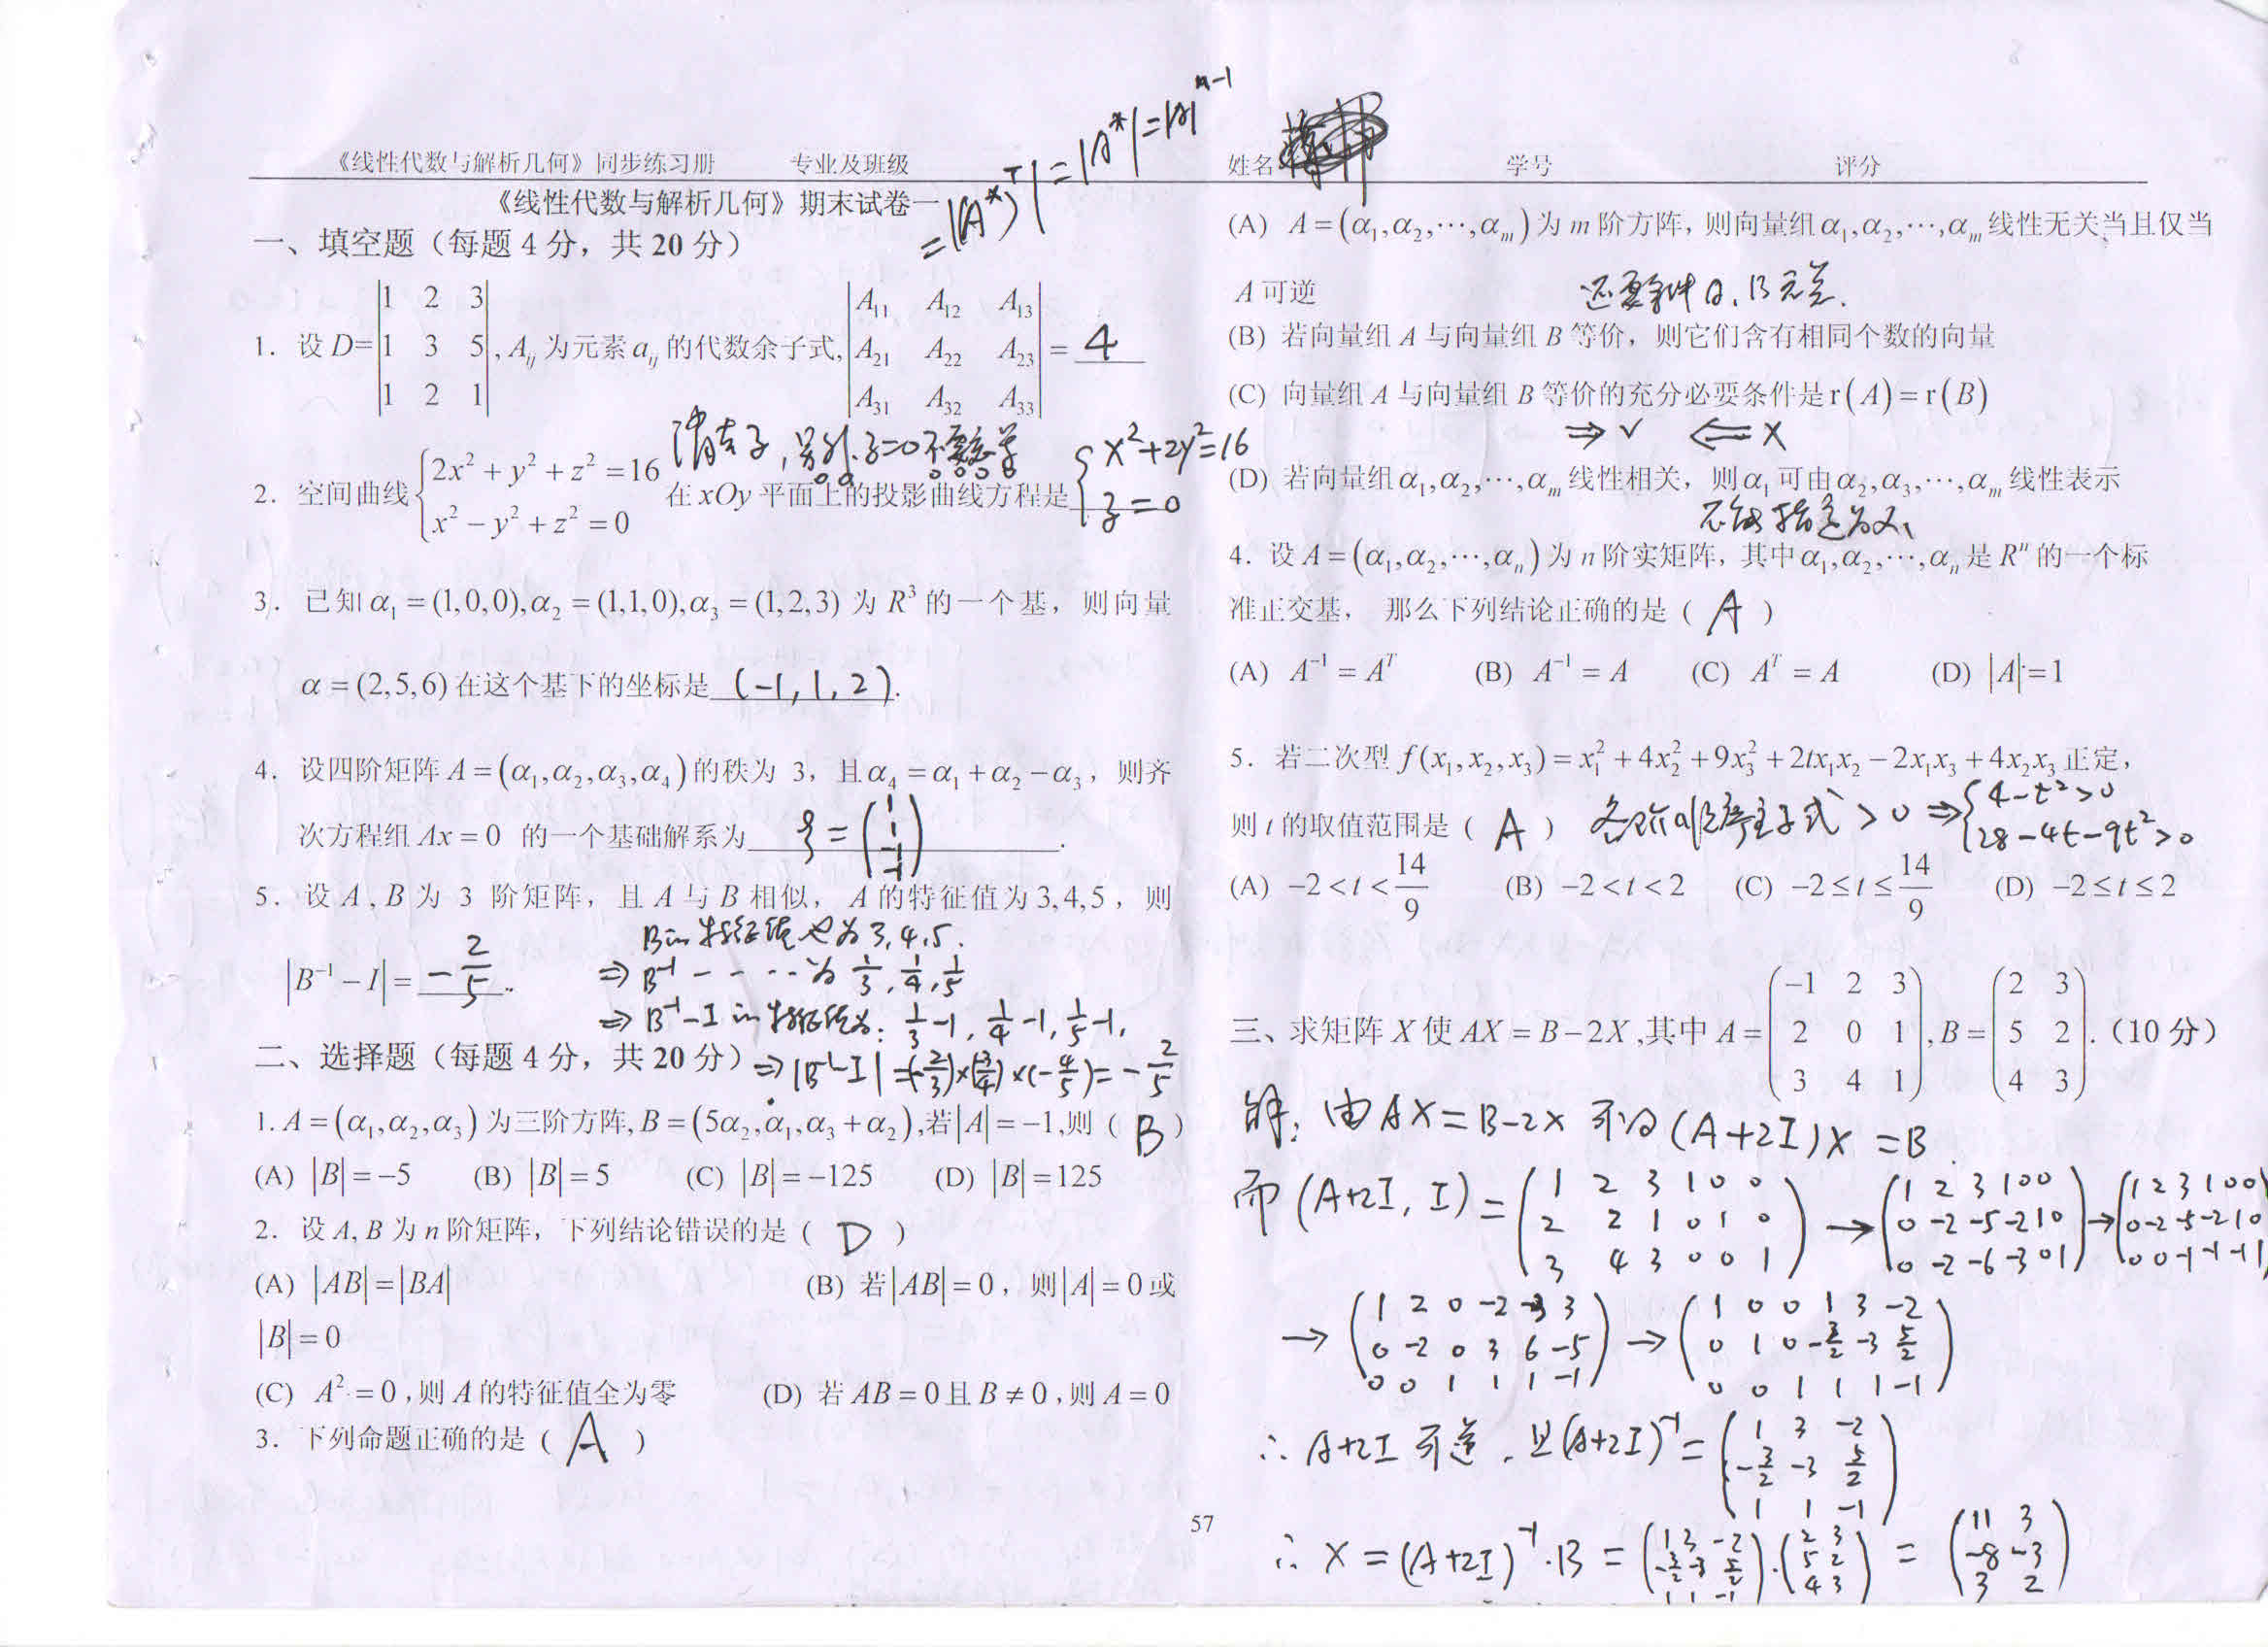 《线性代数与解析几何》同步练习册 专业及班级 姓名 学号 评分
《线性代数与解析几何》期末试卷一
=|(A*)^T|=|A*|=|A|^{n-1}
一、填空题（每题 4 分，共 20 分）
1. 设 D=|1 2 3; 1 3 5; 1 2 1|, A_{ij} 为元素 a_{ij} 的代数余子式, |A_{11} A_{12} A_{13}; A_{21} A_{22} A_{23}; A_{31} A_{32} A_{33}| = 4
消去z,另外,z=0不要忘
2. 空间曲线 {2x²+y²+z²=16; x²−y²+z²=0} 在 xOy 平面上的投影曲线方程是 {x²+2y²=16; z=0}
3. 已知 α₁=(1,0,0),α₂=(1,1,0),α₃=(1,2,3) 为 R³ 的一个基，则向量
α=(2,5,6) 在这个基下的坐标是 (-1,1,2).
4. 设四阶矩阵 A=(α₁,α₂,α₃,α₄) 的秩为 3，且 α₄=α₁+α₂−α₃，则齐
次方程组 Ax=0 的一个基础解系为 ξ=(1; 1; -1; -1).
5. 设 A,B 为 3 阶矩阵，且 A 与 B 相似，A 的特征值为 3,4,5，则
B的特征值也为3,4,5.
|B⁻¹−I|= -2/5.
⇒B⁻¹ - - ···为 1/3,1/4,1/5
⇒B⁻¹-I的特征值为: 1/3-1, 1/4-1, 1/5-1,
二、选择题（每题 4 分，共 20 分）
⇒|B⁻¹-I|=(-2/3)×(-3/4)×(-4/5)=-2/5
1. A=(α₁,α₂,α₃) 为三阶方阵, B=(5α₂,α₁,α₃+α₂),若|A|=−1,则（ B ）
(A) |B|=−5 (B) |B|=5 (C) |B|=−125 (D) |B|=125
2. 设 A,B 为 n 阶矩阵，下列结论错误的是（ D ）
(A) |AB|=|BA| (B) 若|AB|=0，则|A|=0或
|B|=0
(C) A²=0,则 A 的特征值全为零 (D) 若 AB=0 且 B≠0,则 A=0
3. 下列命题正确的是（ A ）
(A) A=(α₁,α₂,···,α_m) 为 m 阶方阵，则向量组 α₁,α₂,···,α_m 线性无关当且仅当
A 可逆
(B) 若向量组 A 与向量组 B 等价，则它们含有相同个数的向量
还要条件A、B无关.
(C) 向量组 A 与向量组 B 等价的充分必要条件是 r(A)=r(B)
⇒√ ⇐×
(D) 若向量组 α₁,α₂,···,α_m 线性相关，则 α₁ 可由 α₂,α₃,···,α_m 线性表示
不能指定为α₁
4. 设 A=(α₁,α₂,···,α_n) 为 n 阶实矩阵，其中 α₁,α₂,···,α_n 是 Rⁿ 的一个标
准正交基， 那么下列结论正确的是（ A ）
(A) A⁻¹=A^T (B) A⁻¹=A (C) A^T=A (D) |A|=1
5. 若二次型 f(x₁,x₂,x₃)=x₁²+4x₂²+9x₃²+2tx₁x₂−2x₁x₃+4x₂x₃ 正定，
则 t 的取值范围是（ A ） 各阶顺序主子式>0 ⇒{4-t²>0; 28-4t-9t²>0
(A) −2<t<14/9 (B) −2<t<2 (C) −2≤t≤14/9 (D) −2≤t≤2
三、求矩阵 X 使 AX=B−2X,其中 A=(−1 2 3; 2 0 1; 3 4 1), B=(2 3; 5 2; 4 3).（10 分）
解: 由AX=B-2X 可得(A+2I)X=B
而(A+2I, I)=(1 2 3 1 0 0; 2 2 1 0 1 0; 3 4 3 0 0 1)→(1 2 3 1 0 0; 0 -2 -5 -2 1 0; 0 -2 -6 -3 0 1)→(1 2 3 1 0 0; 0 -2 -5 -2 1 0; 0 0 -1 -1 -1 1)
→(1 2 0 -2 -3 3; 0 -2 0 3 6 -5; 0 0 1 1 1 -1)→(1 0 0 1 3 -2; 0 1 0 -3/2 -3 5/2; 0 0 1 1 1 -1)
∴A+2I可逆,且(A+2I)⁻¹=(1 3 -2; -3/2 -3 5/2; 1 1 -1)
∴X=(A+2I)⁻¹·B=(1 3 -2; -3/2 -3 5/2; 1 1 -1)·(2 3; 5 2; 4 3)=(11 3; -8 -3; 3 2)
57